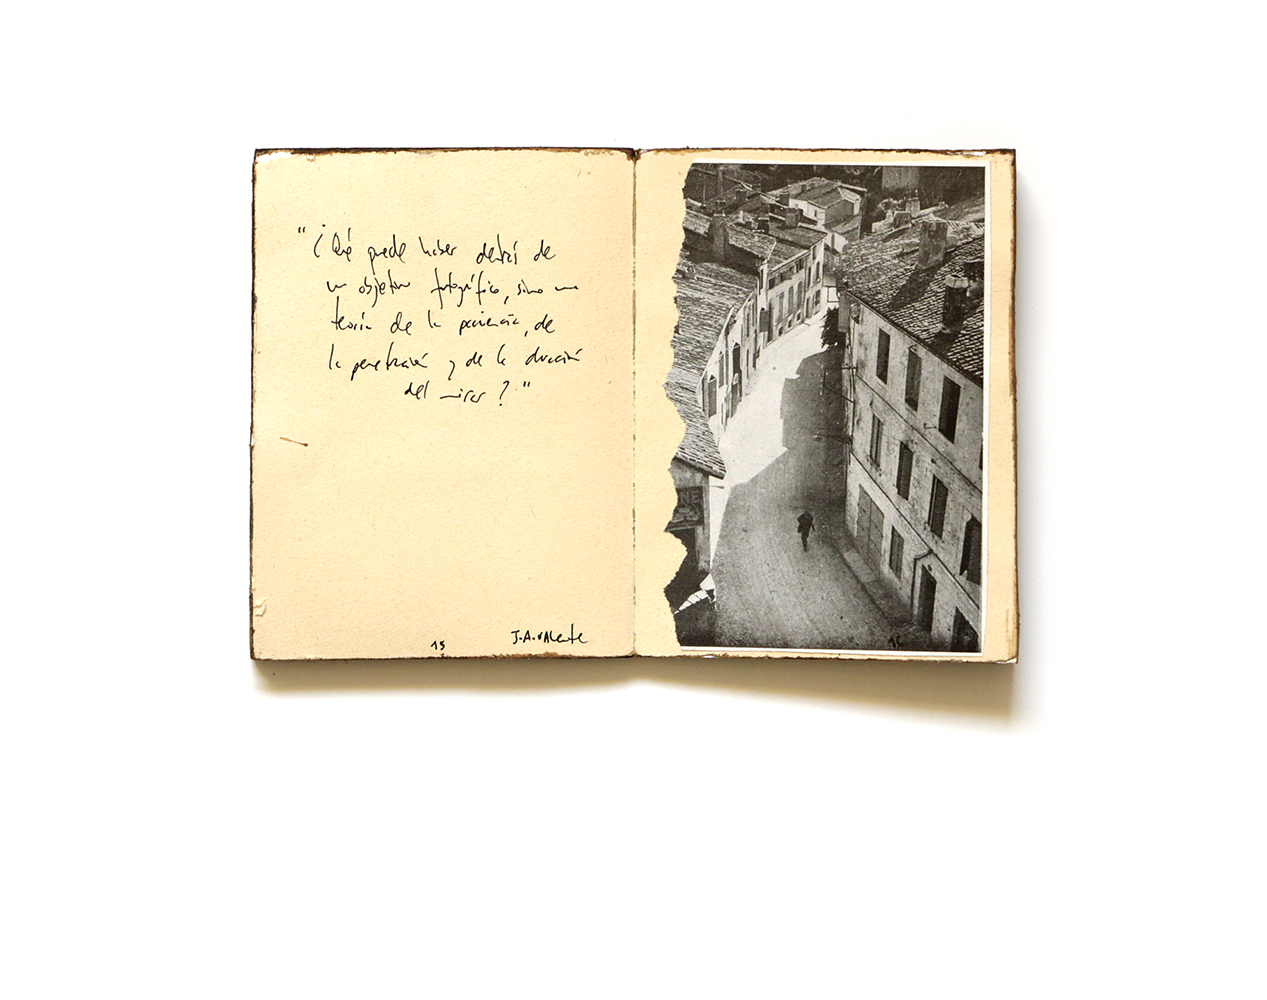 "¿Qué puede haber detrás de
un objetivo fotográfico, sino una
teoría de la paciencia, de
la penetración y de la duración
del mirar?"
J.A. VALente
15
NE